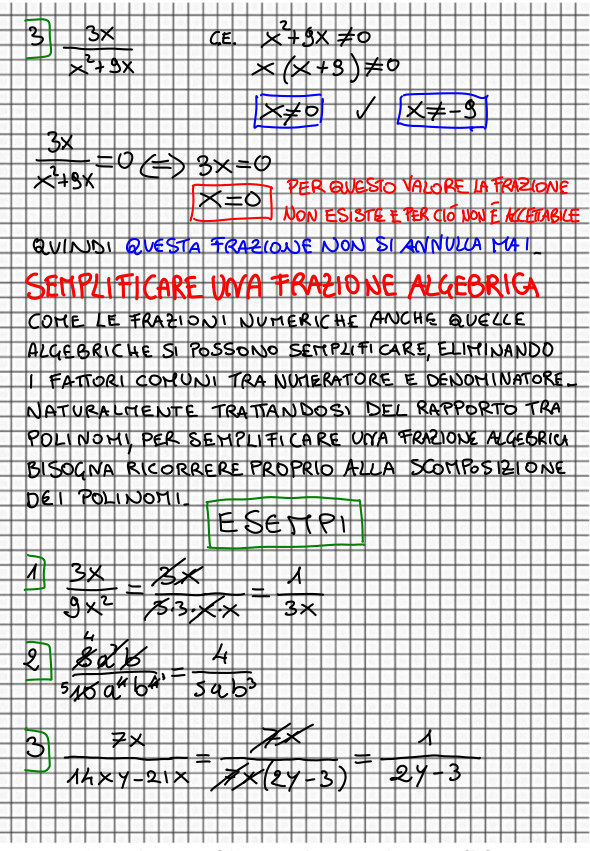 3 3x/(x²+9x) C.E. x²+9x≠0
x(x+9)≠0
x≠0 ✓ x≠-9
3x/(x²+9x)=0 ⇔ 3x=0
x=0 PER QUESTO VALORE LA FRAZIONE
NON ESISTE E PER CIÓ NON É ACCETTABILE
QUINDI QUESTA FRAZIONE NON SI ANNULLA MAI_
SEMPLIFICARE UNA FRAZIONE ALGEBRICA
COME LE FRAZIONI NUMERICHE ANCHE QUELLE
ALGEBRICHE SI POSSONO SEMPLIFICARE, ELIMINANDO
I FATTORI COMUNI TRA NUMERATORE E DENOMINATORE_
NATURALMENTE TRATTANDOSI DEL RAPPORTO TRA
POLINOMI, PER SEMPLIFICARE UNA FRAZIONE ALGEBRICA
BISOGNA RICORRERE PROPRIO ALLA SCOMPOSIZIONE
DEI POLINOMI_
ESEMPI
1 3x/9x² = 3x/(3·3·x·x) = 1/3x
2 = 4/5ab³
3 7x/(14xy-21x) = 7x/(7x(2y-3)) = 1/(2y-3)